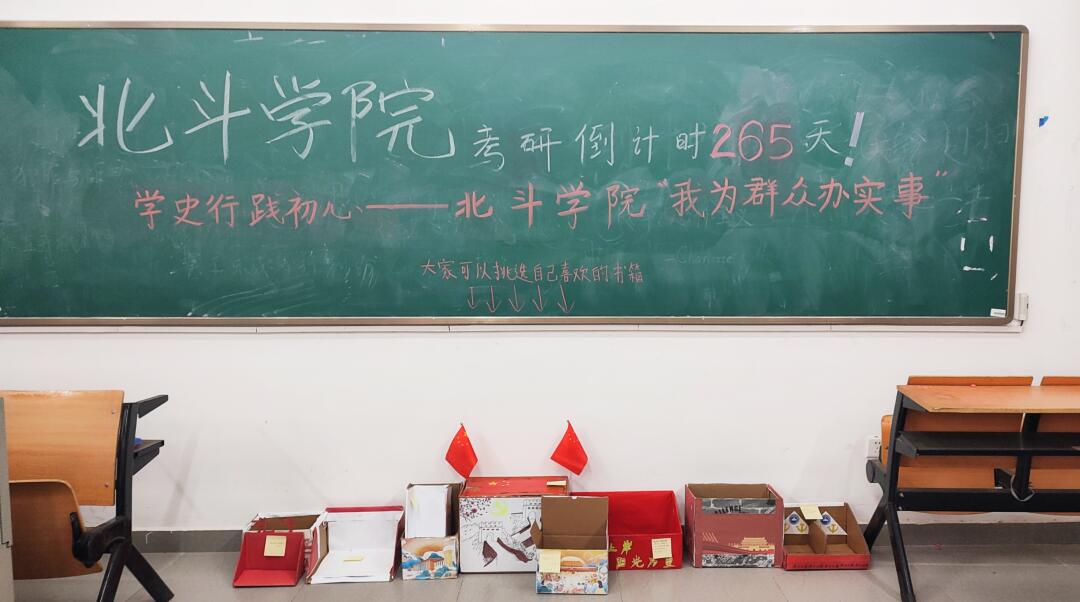 北斗学院 考研倒计时265天！
学史行践初心——北斗学院“我为群众办实事”
大家可以挑选自己喜欢的书箱
Charlotte